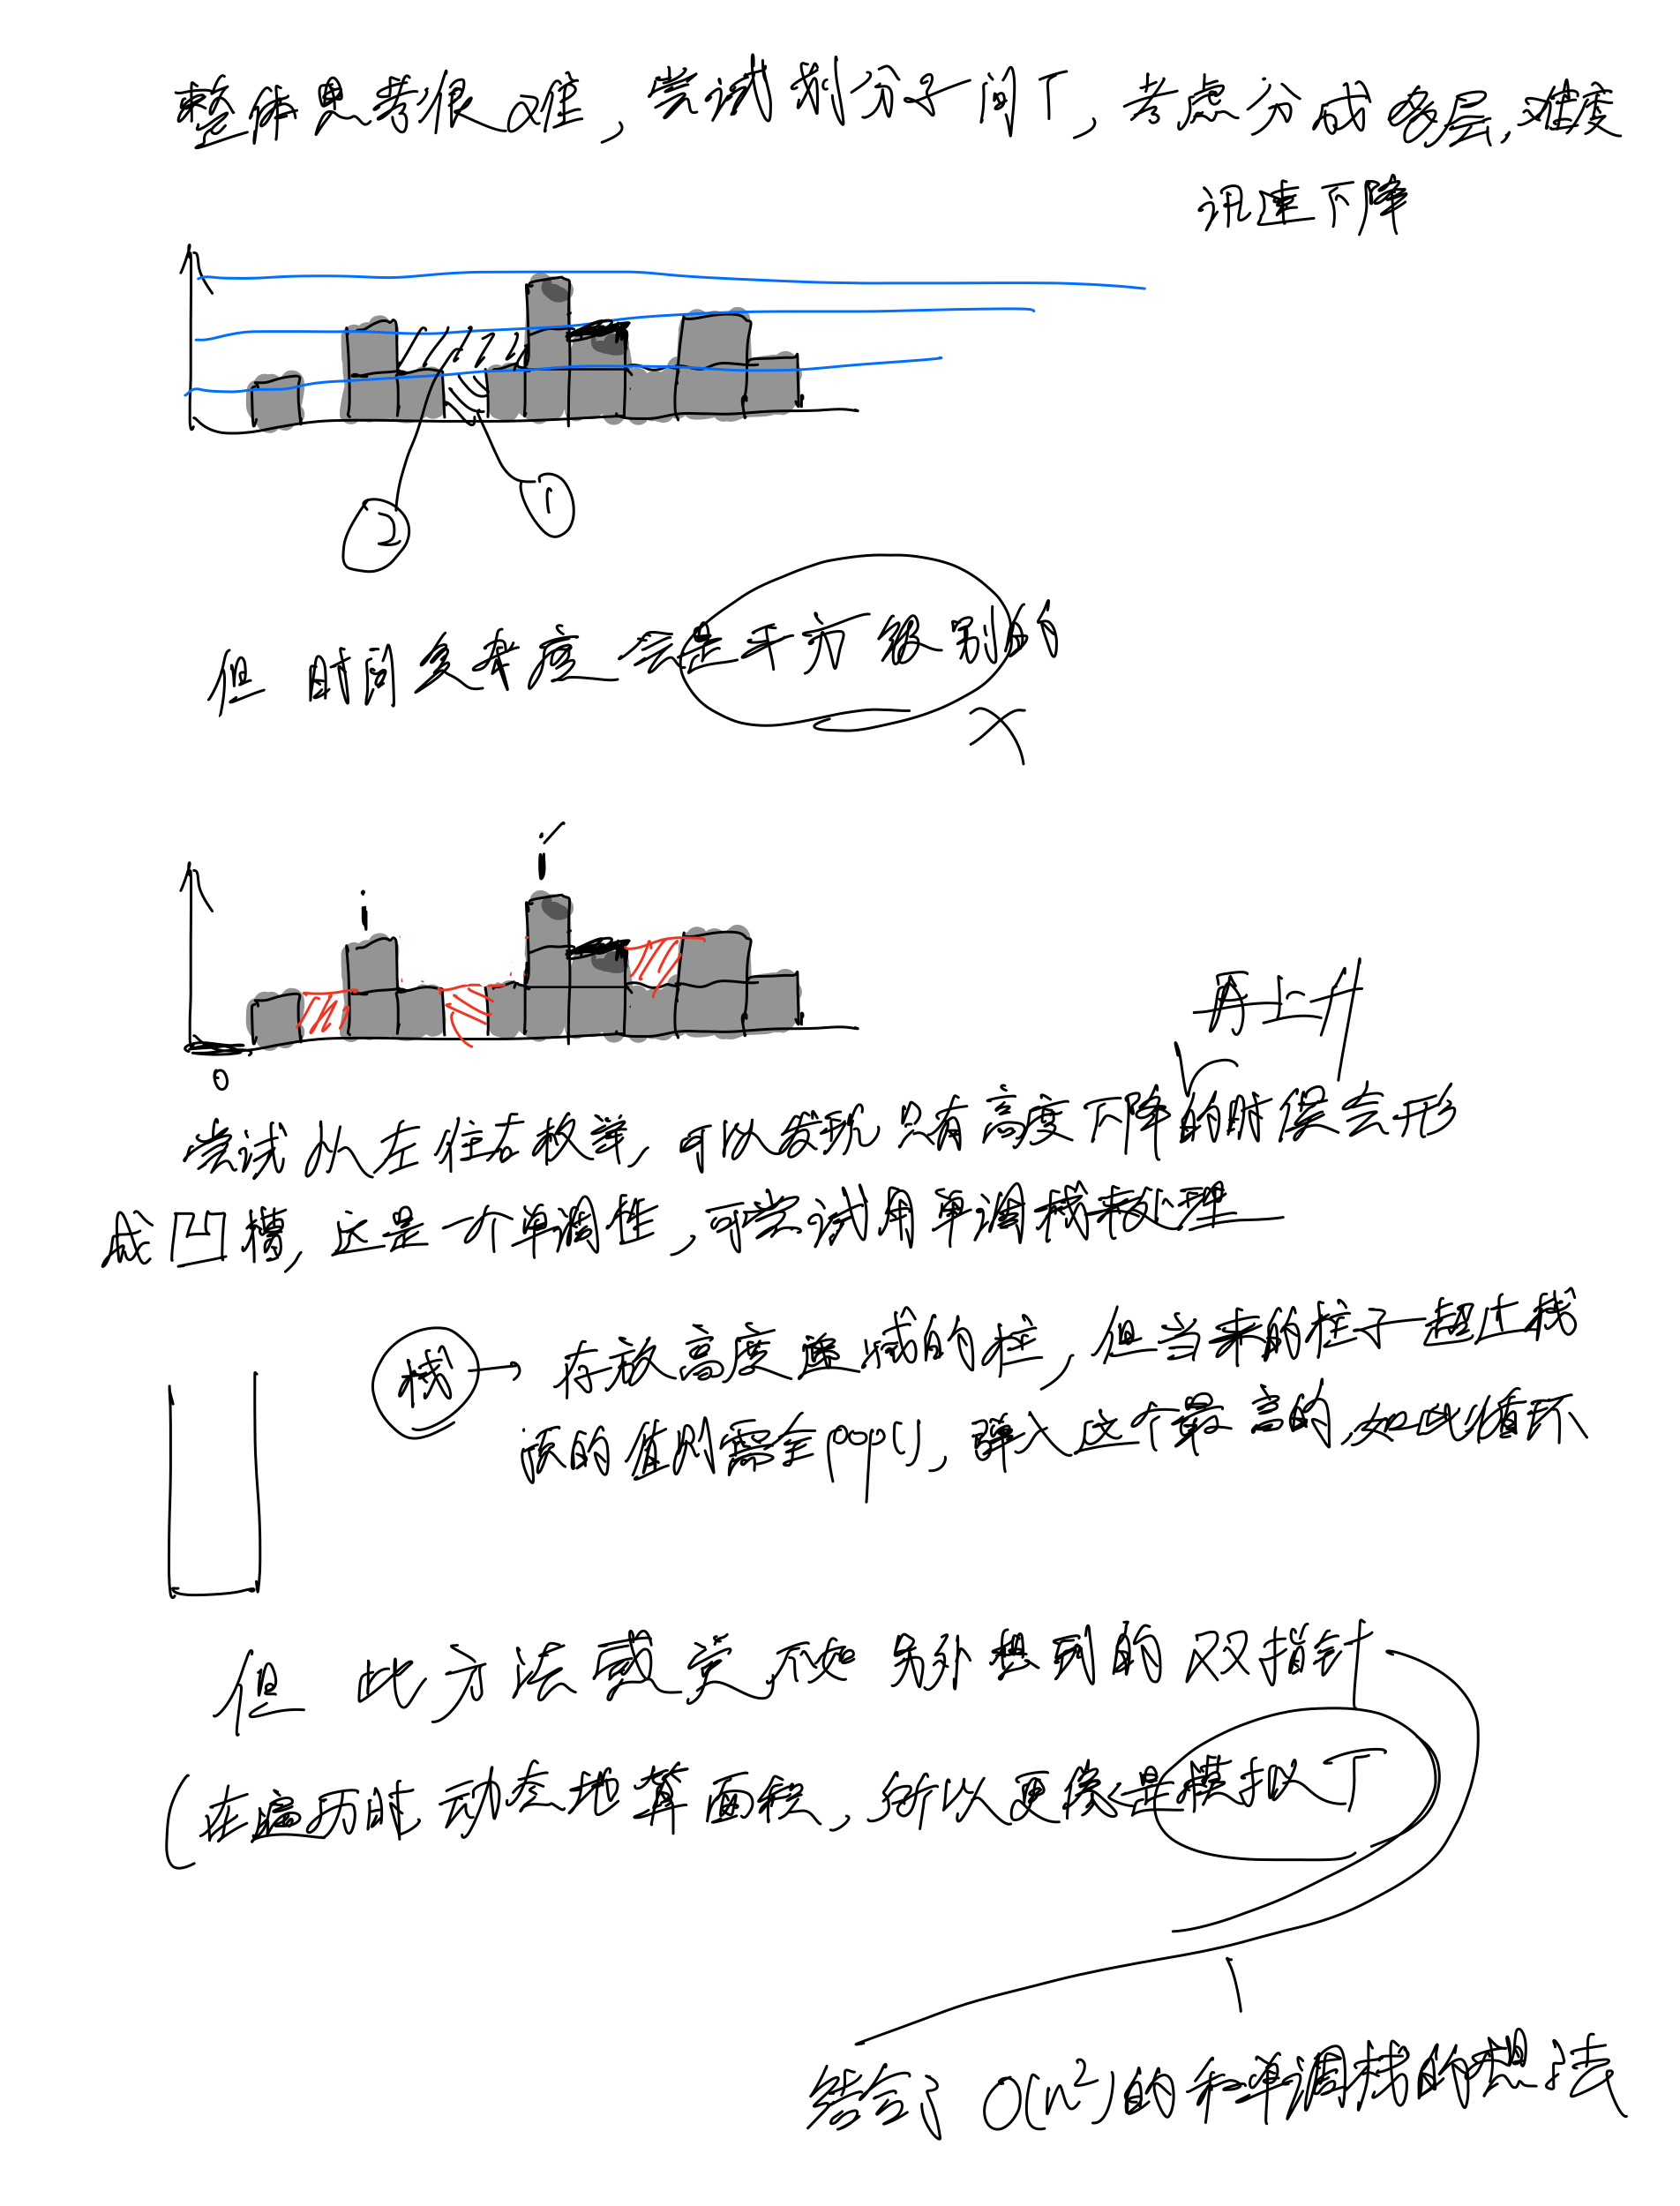 整体思考很难，尝试划分子问丁，考虑分成多层，难度
迅速下降
②
①
但时间复杂度会是平方级别的
i
i′
0
再上升
尝试从左往右枚举，可以发现只有高度下降的时候会形
成凹槽，这是一个单调性，可尝试用单调栈来处理
栈 → 存放高度递减的柱，但当来的柱子超过栈
顶的值则需全pop()，弹入这个最高的，如此循环
但此方法感觉不如另外想到的双指针
（在遍历时动态地算面积，所以更像是模拟了
结合了O(n²)的和单调栈的想法